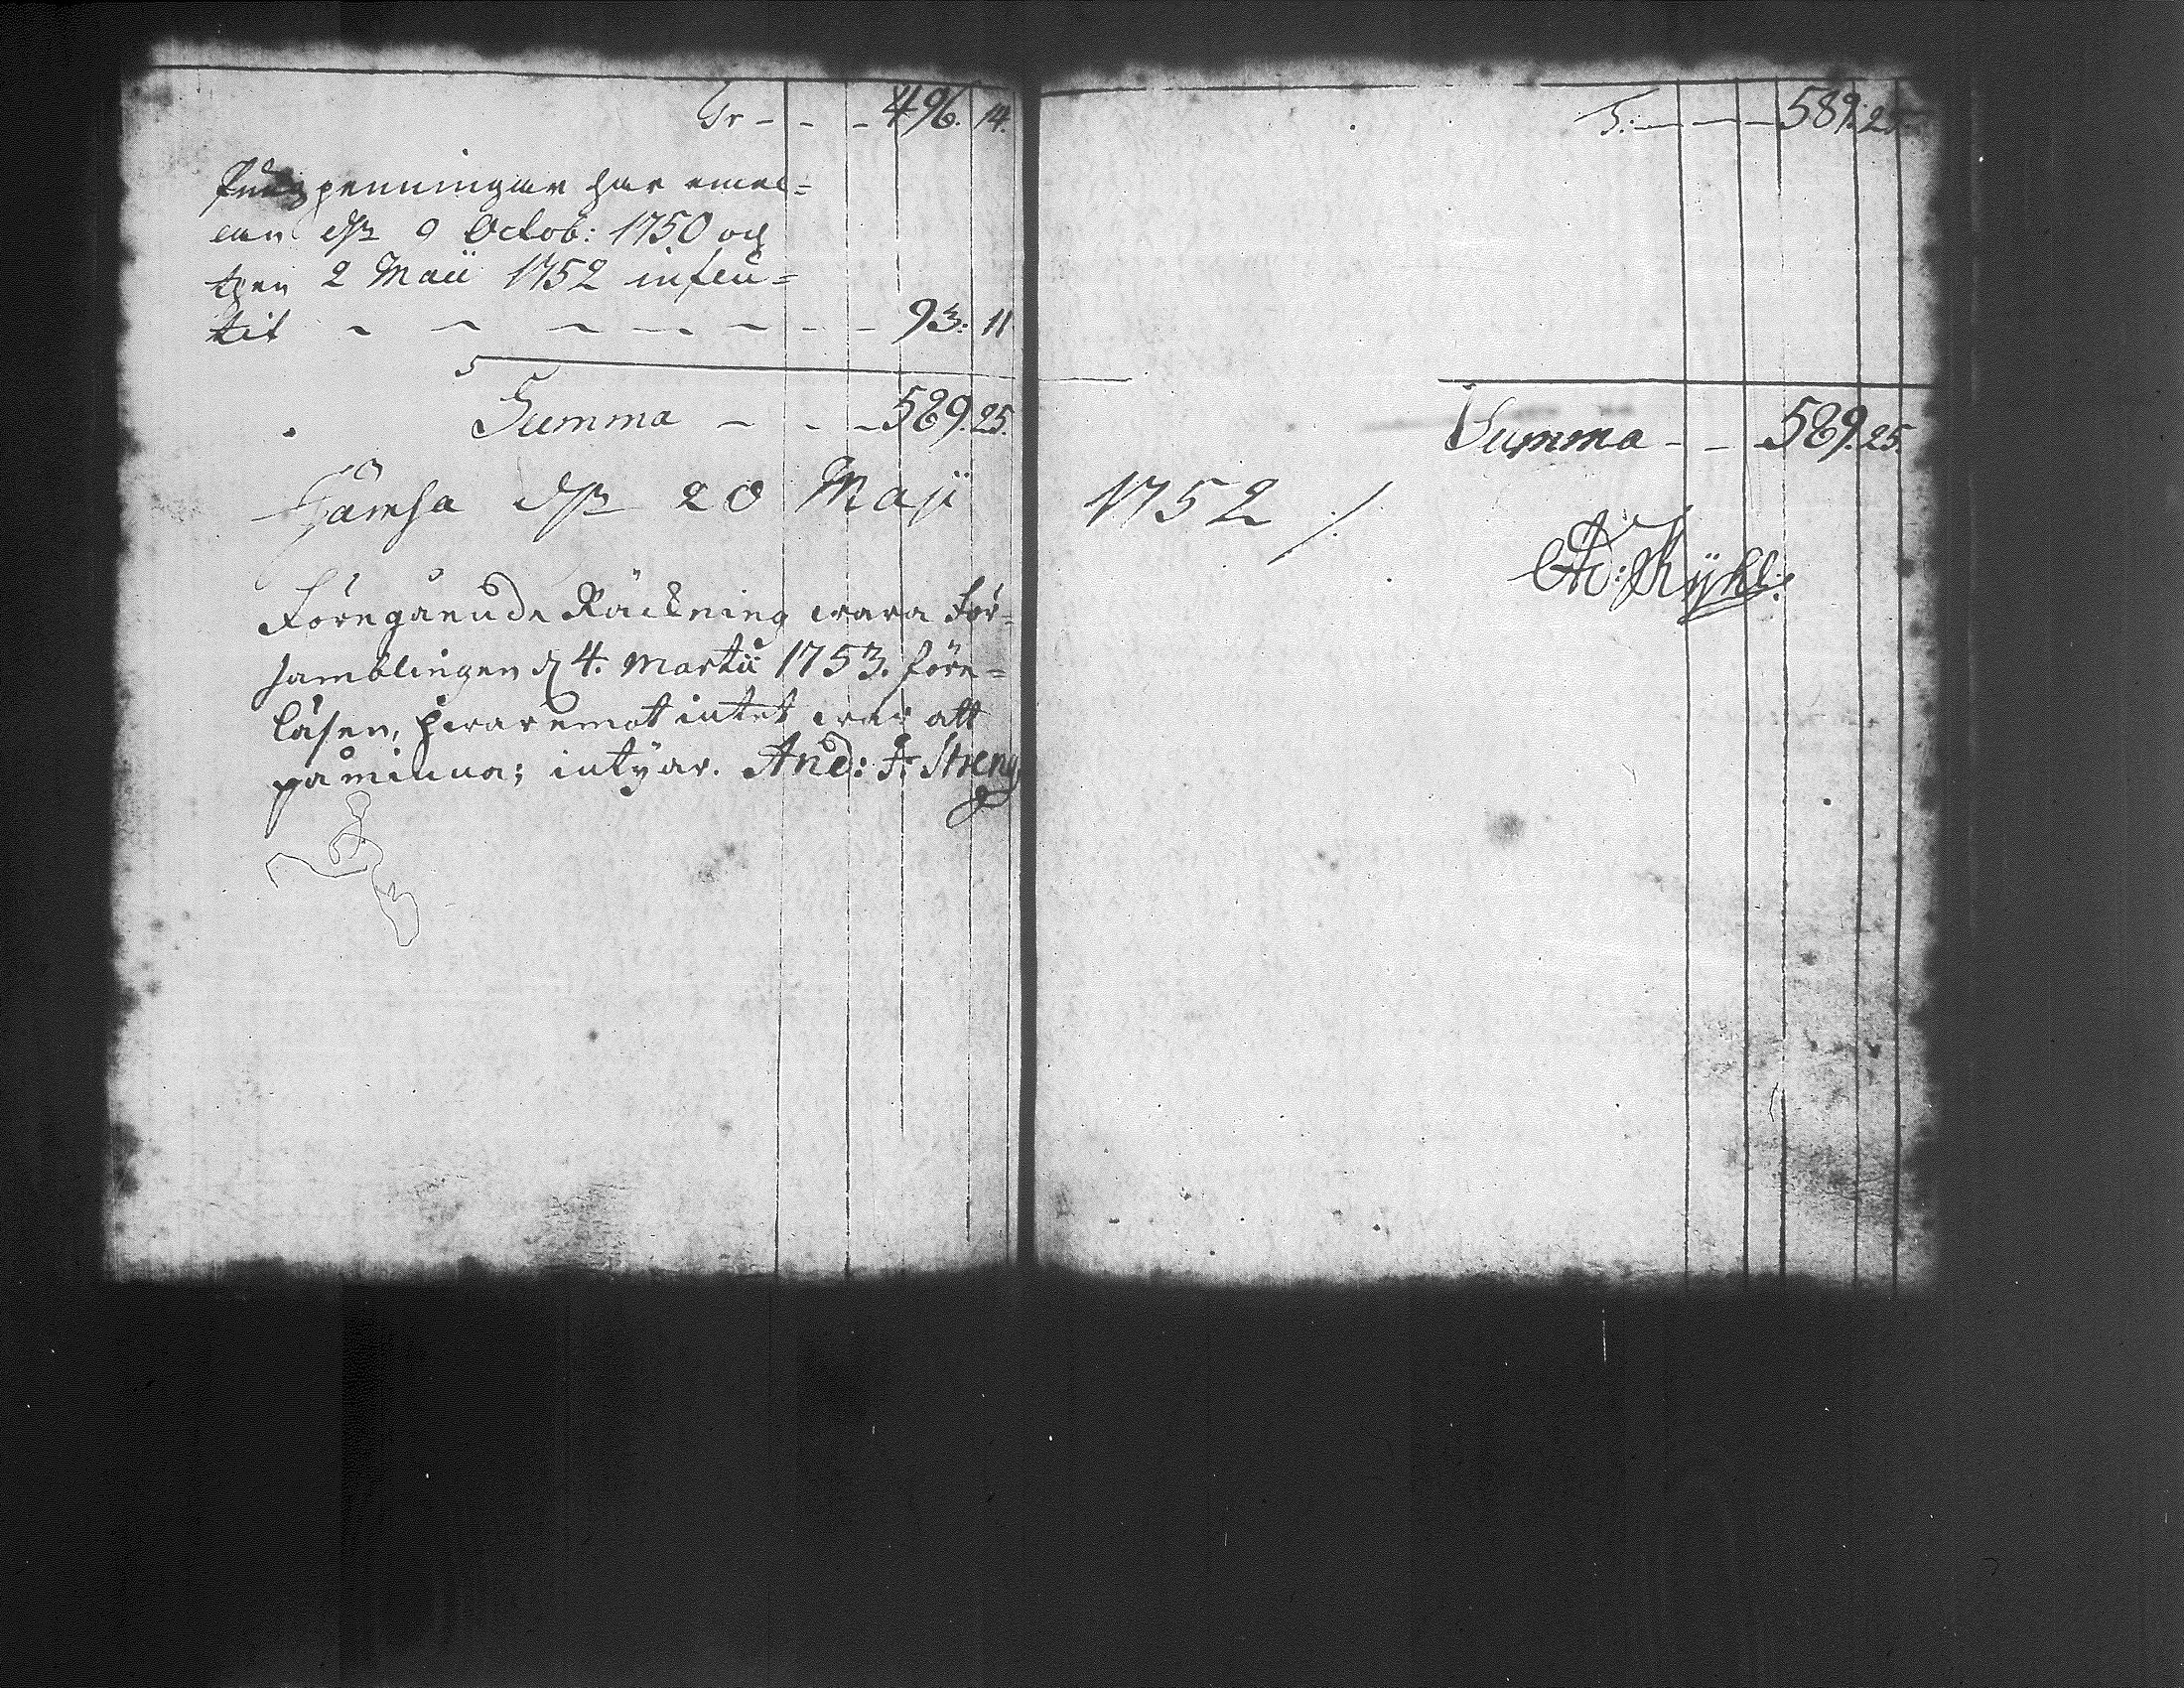 Tr - - - 496. 14.
Pungpenningar har emel=
lan d. 9 Octob: 1750 och
then 2 Maii 1752 influ=
tit - - - - - - - - 93. 11
Summa - - - 589. 25.
Jämsä d. 20 Maji
Föregående Räckning wara För=
samblingen d. 4. Martii 1753. före=
läsen, hwaremot intet war att
påminna; intygar. And: Fr: Streng
T: - - - 589. 25
Summa - - 589. 25.
1752 ./.